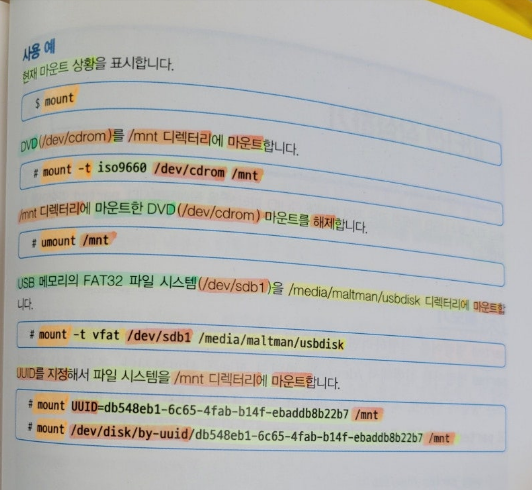 사용 예
현재 마운트 상황을 표시합니다.
$ mount
DVD(/dev/cdrom)를 /mnt 디렉터리에 마운트합니다.
# mount -t iso9660 /dev/cdrom /mnt
/mnt 디렉터리에 마운트한 DVD(/dev/cdrom) 마운트를 해제합니다.
# umount /mnt
USB 메모리의 FAT32 파일 시스템(/dev/sdb1)을 /media/maltman/usbdisk 디렉터리에 마운트합
니다.
# mount -t vfat /dev/sdb1 /media/maltman/usbdisk
UUID를 지정해서 파일 시스템을 /mnt 디렉터리에 마운트합니다.
# mount UUID=db548eb1-6c65-4fab-b14f-ebaddb8b22b7 /mnt
# mount /dev/disk/by-uuid/db548eb1-6c65-4fab-b14f-ebaddb8b22b7 /mnt